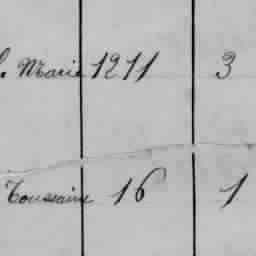 Marie 1211 3
Toussaint 16 1